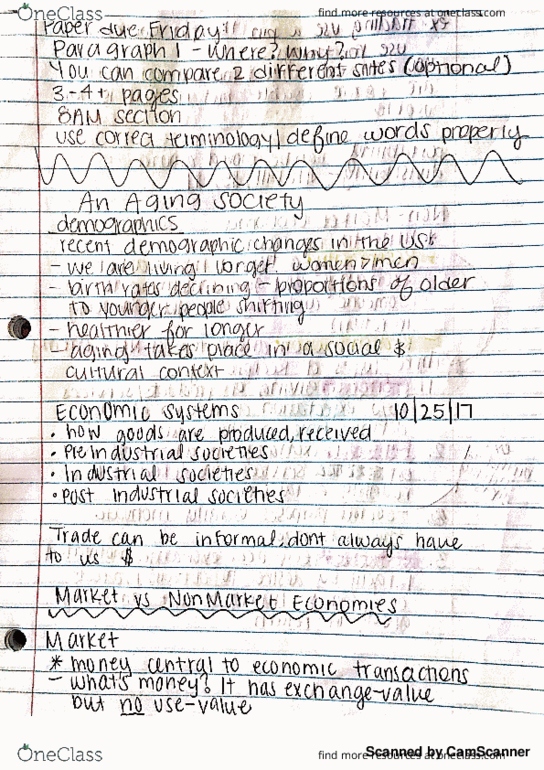 OneClass
find more resources at oneclass.com
Paper due Friday!!
Paragraph 1 - Where? Why?
You can compare 2 different sites (optional)
3-4+ pages
8AM section
use correct terminology / define words properly
An Aging Society
demographics
recent demographic changes in the US:
- we are living longer women > men
- birth rates declining - proportions of older
to younger people shifting
- healthier for longer
- aging takes place in a social &
cultural context
Economic systems 10/25/17
• how goods are produced, received
• Preindustrial societies
• Industrial societies
• post industrial societies
Trade can be informal, dont always have
to us $
Market vs NonMarket Economies
Market
* money central to economic transactions
- what's money? It has exchange-value
but no use-value
OneClass
find more resources at oneclass.com
Scanned by CamScanner